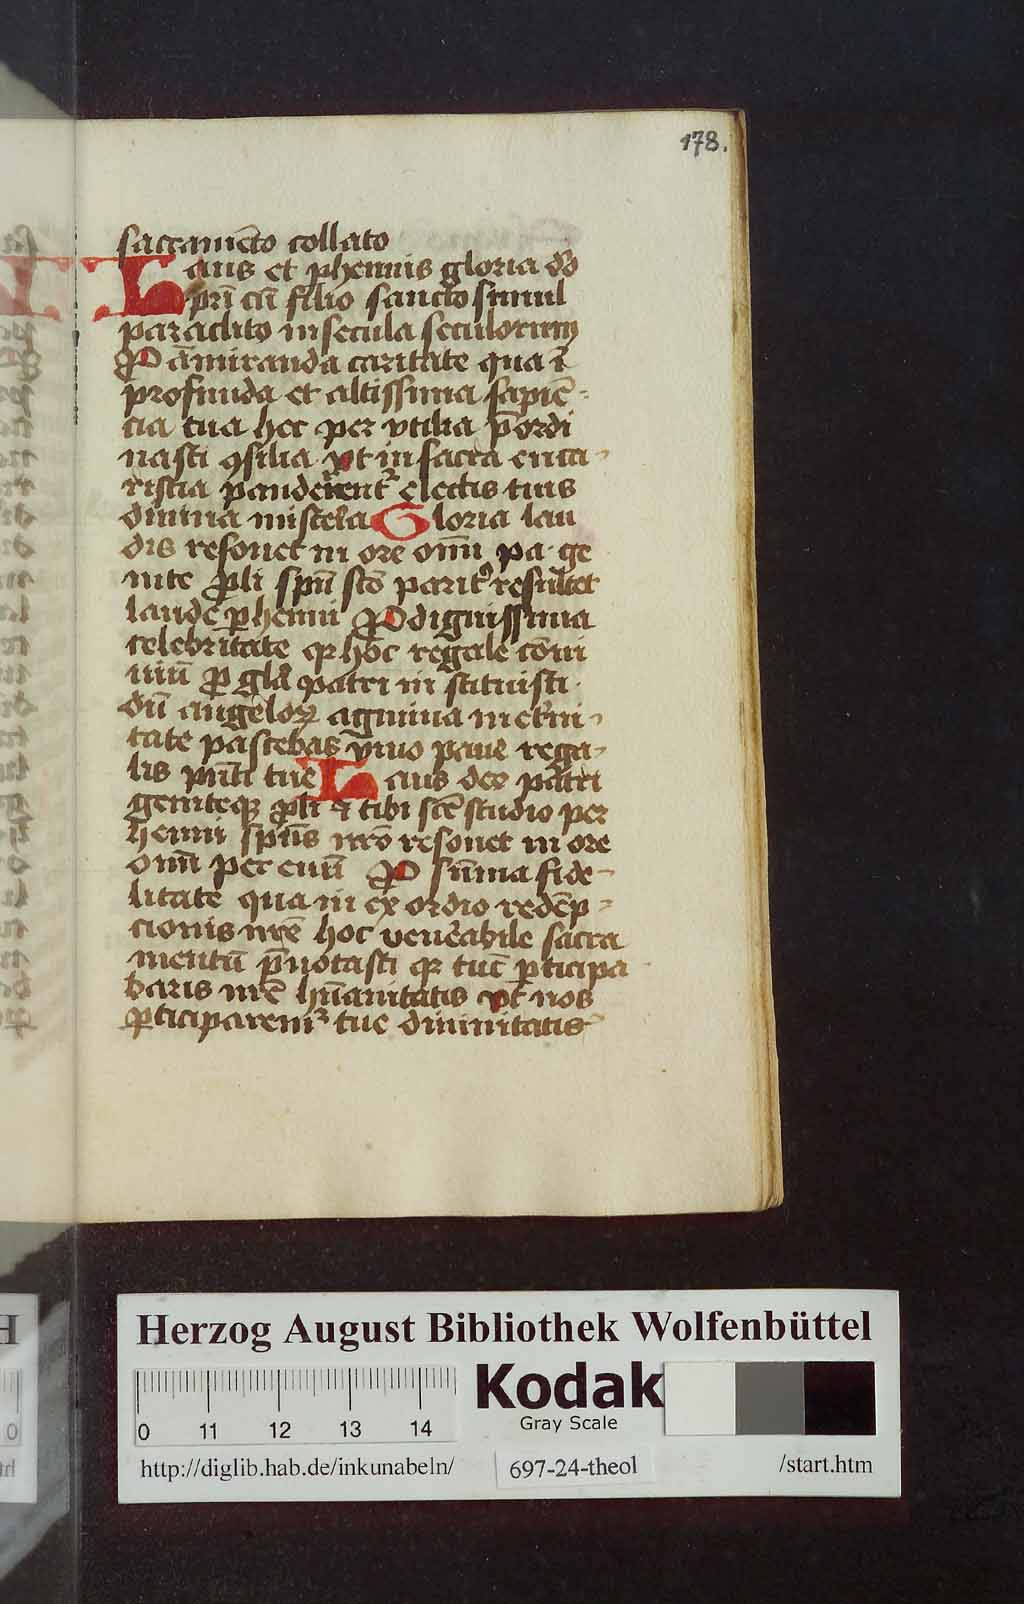 178.
sacramēto collato
Laus et phennis gloria dō
pri cū filio sancto simul
paraclito in secula seculorum
O āmiranda caritate qua ī
profunda et altissima sapiē-
cia tua hec per vtilia p̄ordi
nasti ꝯsilia vt in sacra euca-
ristia panderent' electis tuis
diuina misteria Gloria lau
dis resonet in ore om̄i pa. ge
nite ꝓli spūi scō parit' resultet
laude ꝑhenni O dignissima
celebritate qꝛ hoc regale cōui
uiū ꝓ glā patri in stituisti
dū angeloꝝ agmina in et'ni-
tate pastebas viuo pane rega-
lis mēti tue Laus deo patri
geniteqꝫ ꝓli & tibi scē studio per
henni spūs nrō resonet in ore
omī per euū O sūma fide-
litate qua in ex ordio redēp-
cionis nrē hoc venerabile sacra
mentū p̄notasti qꝛ tūc ꝑticipa
baris nrē hūanitatis vt nos
ꝑticiparem' tue diuinitatis
Herzog August Bibliothek Wolfenbüttel
Kodak
Gray Scale
0 11 12 13 14
http://diglib.hab.de/inkunabeln/ 697-24-theol /start.htm